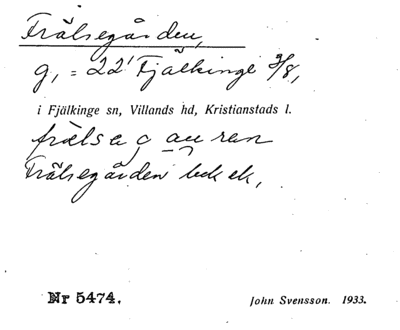 Frälsegården,
g, = 22' Fjälkinge 3/8,
i Fjälkinge sn, Villands hd, Kristianstads l.
Frälsegården bek ek,
Nr 5474.
John Svensson. 1933.